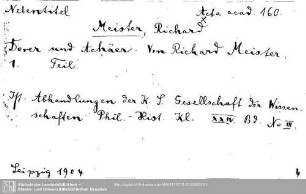 Nebentitel
Acta acad. 160.
Meister, Richard
Dorer und Achäer. Von Richard Meister.
1. Teil
Abhandlungen der K. S. Gesellschaft der Wissen-
schaften Phil.-Hist. Kl. XXIV Bd. No III
Leipzig 1904